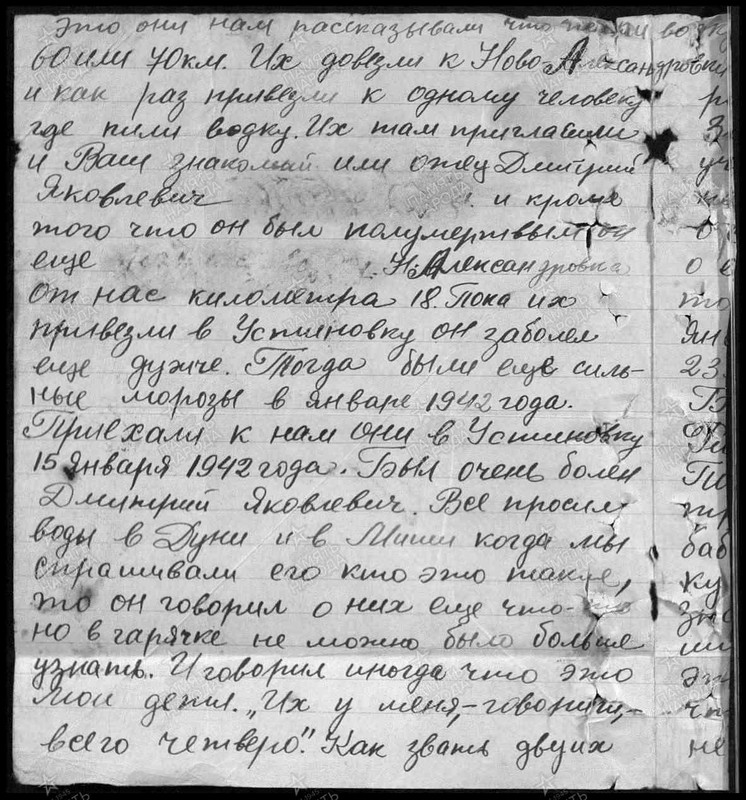 Это они нам рассказывали что
60 или 70 км. Их довезли к НовоАлександровки
и как раз привезли к одному человеку
где пили водку. Их там пригласили
и Ваш знакомый или отец Дмитрий
Яковлевич и кроме
того что он был полумертвым он
еще Н.Александровка
от нас километра 18. Пока их
привезли в Устиновку он заболел
еще дужче. Тогда были еще силь-
ные морозы в январе 1942 года.
Приехали к нам они в Устиновку
15 января 1942 года. Был очень болен
Дмитрий Яковлевич. Все просил
воды в Дуни и в Миши когда мы
спрашивали его кто это такие,
то он говорил о них еще что-то
но в гарячке не можно было больше
узнать. И говорил иногда что это
мои дети. „Их у меня,-говорил,-
всего четверо". Как звать двуих